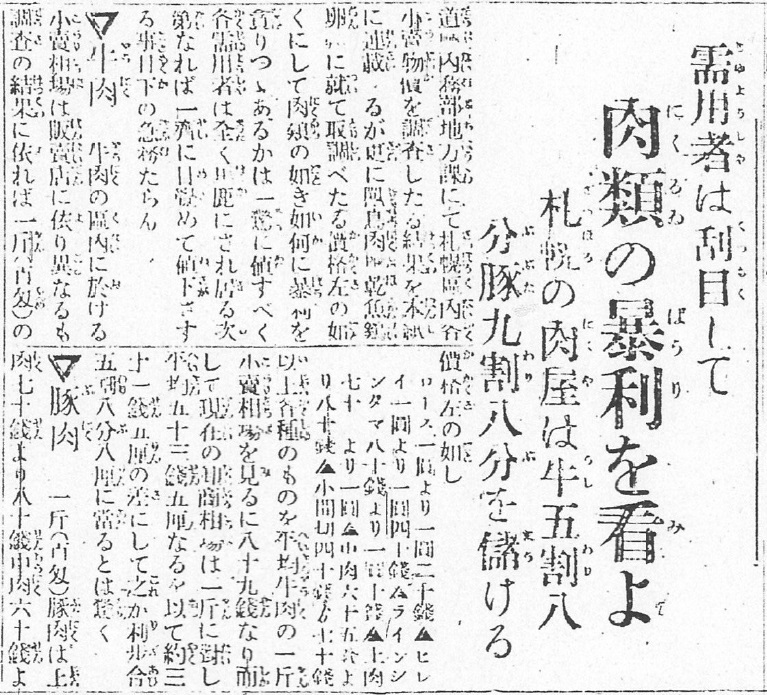 需用者は刮目して
肉類の暴利を看よ
札幌の肉屋は牛五割八
分豚九割八分を儲ける
道廳内務部地方課にて札幌區内各
小賣物價を調査したる結果を本紙
に連載るが更に鳥肉乾魚
卵に就て取調べたる價格左の如
くにして肉類の如き如何に暴利を
貪りつゝあるかは一驚に値すべく
各需用者は全く馬鹿にされ居る次
第なれば一齊に目覺めて値下さす
る事目下の急務たらん
▼牛肉 牛肉の區内に於ける
小賣相場は販賣店に依り異なるも
調査の結果に依れば一斤(百匁)の
價格左の如し
ロース一圓より一圓二十錢▲ヒレ
イ一圓より一圓四十錢▲ラインシ
ンタマ八十錢より一圓十錢▲上肉
七十より一圓▲中肉六十五より
八十錢▲小間切四十錢七十錢
以上各種のものを平均牛肉の一斤
小賣相場を見るに八十九錢なり而
して現在の卸商相場は一斤に對し
平均五十三錢五厘なるを以て約三
十一錢五厘の差にして之が利歩合
五割八分八厘に當るとは驚く
▼豚肉 一斤(百匁)豚肉は上
肉七十錢より八十錢中肉六十錢よ